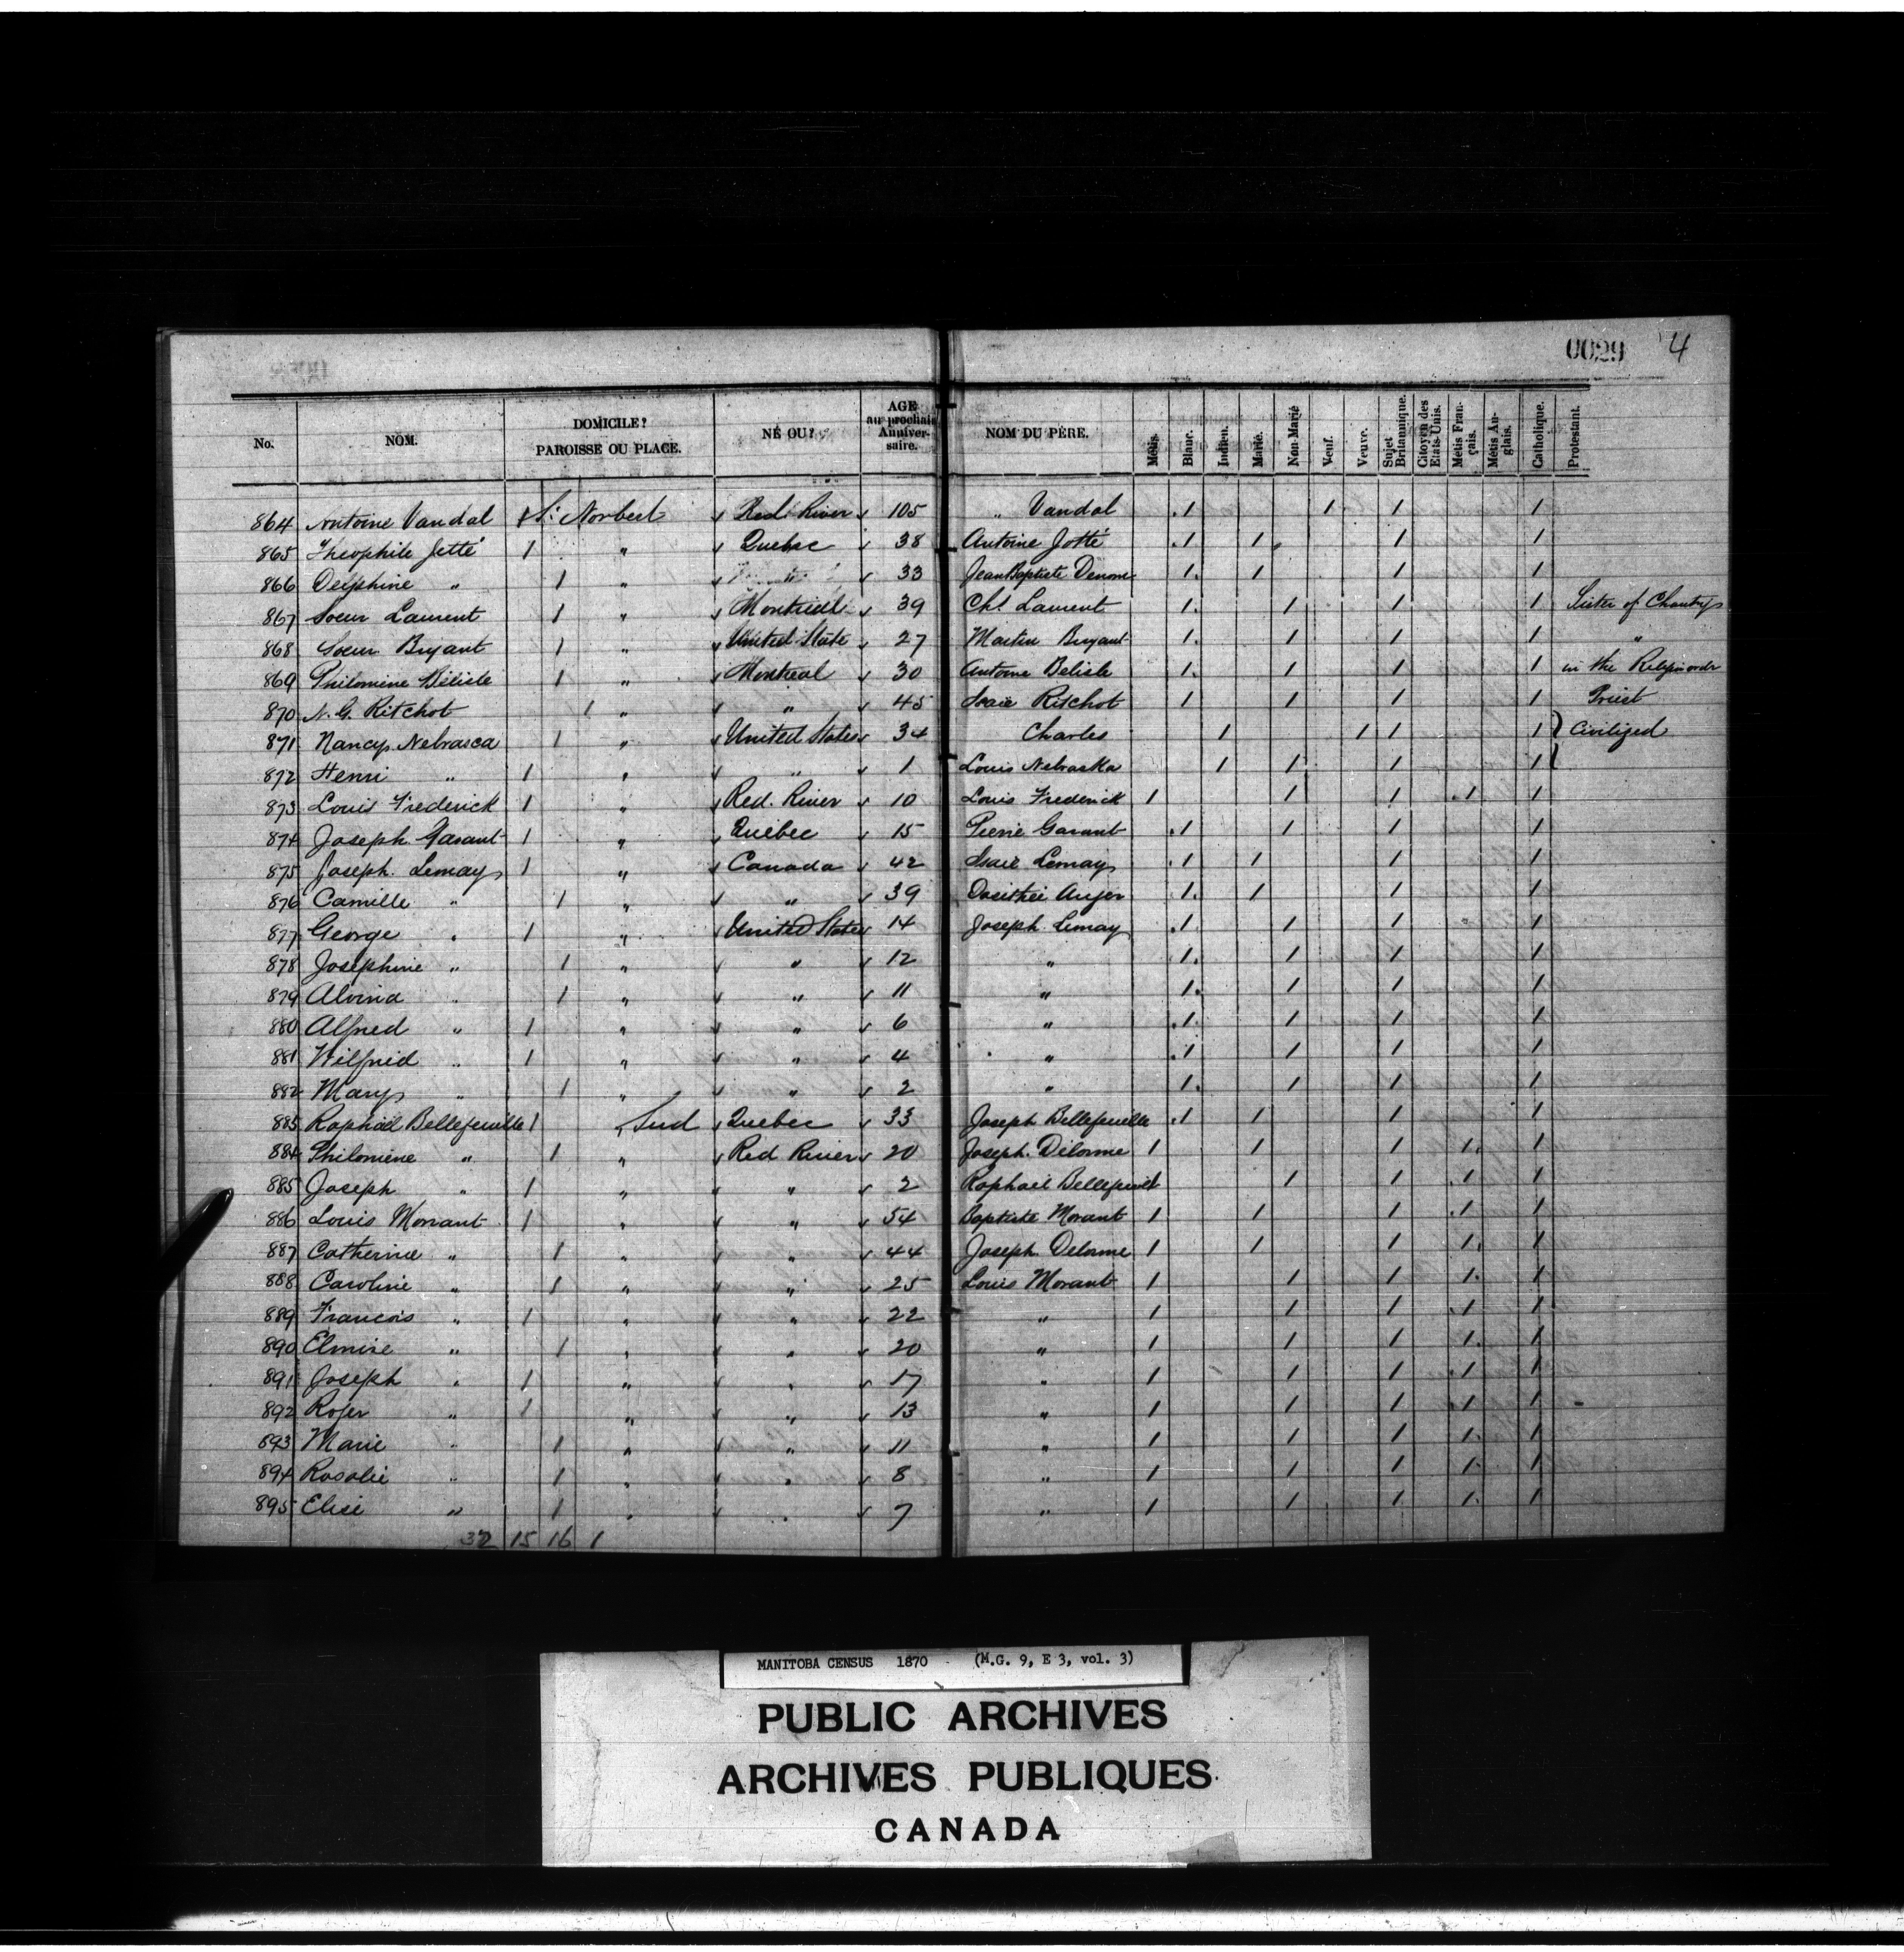 0029 4
No. NOM. DOMICILE? PAROISSE OU PLACE. NÉ OU? AGE au prochain Anniversaire. NOM DU PÈRE. Métis. Blanc. Indien. Marié. Non-Marié Veuf. Veuve. Sujet Britannique. Citoyen des Etats-Unis. Métis Français. Métis Anglais. Catholique. Protestant.
864 Antoine Vandal St. Norbert Red River 105 " Vandal 1 1 1 1
865 Theophile Jetté 1 " Quebec 38 Antoine Jotté 1 1 1 1
866 Delphine " 1 " " 33 Jean Baptiste Denom 1 1 1 1
867 Soeur Laurent 1 " Montreal 39 Chs. Laurent 1 1 1 1 Sister of Charity
868 Soeur Bryant 1 " United State 27 Martin Bryant 1 1 1 1 "
869 Philomine Bélisle 1 " Montreal 30 Antoine Belisle 1 1 1 1 in the order
870 N. G. Ritchot 1 " " 45 Isaïe Ritchot 1 1 1 1 Priest
871 Nancy Nebrasca 1 " United States 34 Charles 1 1 1 1 Civilized
872 Henri " 1 " " 1 Louis Nebraska 1 1 1 1
873 Louis Frederick 1 " Red. River 10 Louis Frederick 1 1 1 1 1
874 Joseph Garant 1 " Quebec 15 Pierre Garant 1 1 1 1
875 Joseph. Lemay 1 " Canada 42 Isaïe Lemay 1 1 1 1
876 Camille " 1 " " 39 Dosithée Auger 1 1 1 1
877 George " 1 " United State 14 Joseph Lemay 1 1 1 1
878 Josephine " 1 " " 12 " 1 1 1 1
879 Alvina " 1 " " 11 " 1 1 1 1
880 Alfred " 1 " " 6 " 1 1 1 1
881 Wilfrid " 1 " " 4 " 1 1 1 1
882 Mary " 1 " " 2 " 1 1 1 1
883 Raphaël Bellefeuille 1 " Sud Quebec 33 Joseph Bellefeuille 1 1 1 1
884 Philomène " 1 " Red River 20 Joseph. Delorme 1 1 1 1 1
885 Joseph " 1 " " 2 Raphael 1 1 1 1 1
886 Louis Morrant 1 " " 54 Baptiste Morant 1 1 1 1 1
887 Catherine " 1 " " 44 Joseph Delorme 1 1 1 1 1
888 Caroline " 1 " " 25 Louis Morant 1 1 1 1 1
889 Francois " 1 " " 22 " 1 1 1 1 1
890 Elmire " 1 " " 20 " 1 1 1 1 1
891 Joseph " 1 " " 17 " 1 1 1 1 1
892 Roger " 1 " " 13 " 1 1 1 1 1
893 Marie " 1 " " 11 " 1 1 1 1 1
894 Rosalie " 1 " " 8 " 1 1 1 1 1
895 Elise " 1 " " 7 " 1 1 1 1 1
32 15 16 1
MANITOBA CENSUS 1870 - (M.G. 9, E 3, vol. 3)
PUBLIC ARCHIVES
ARCHIVES PUBLIQUES
CANADA